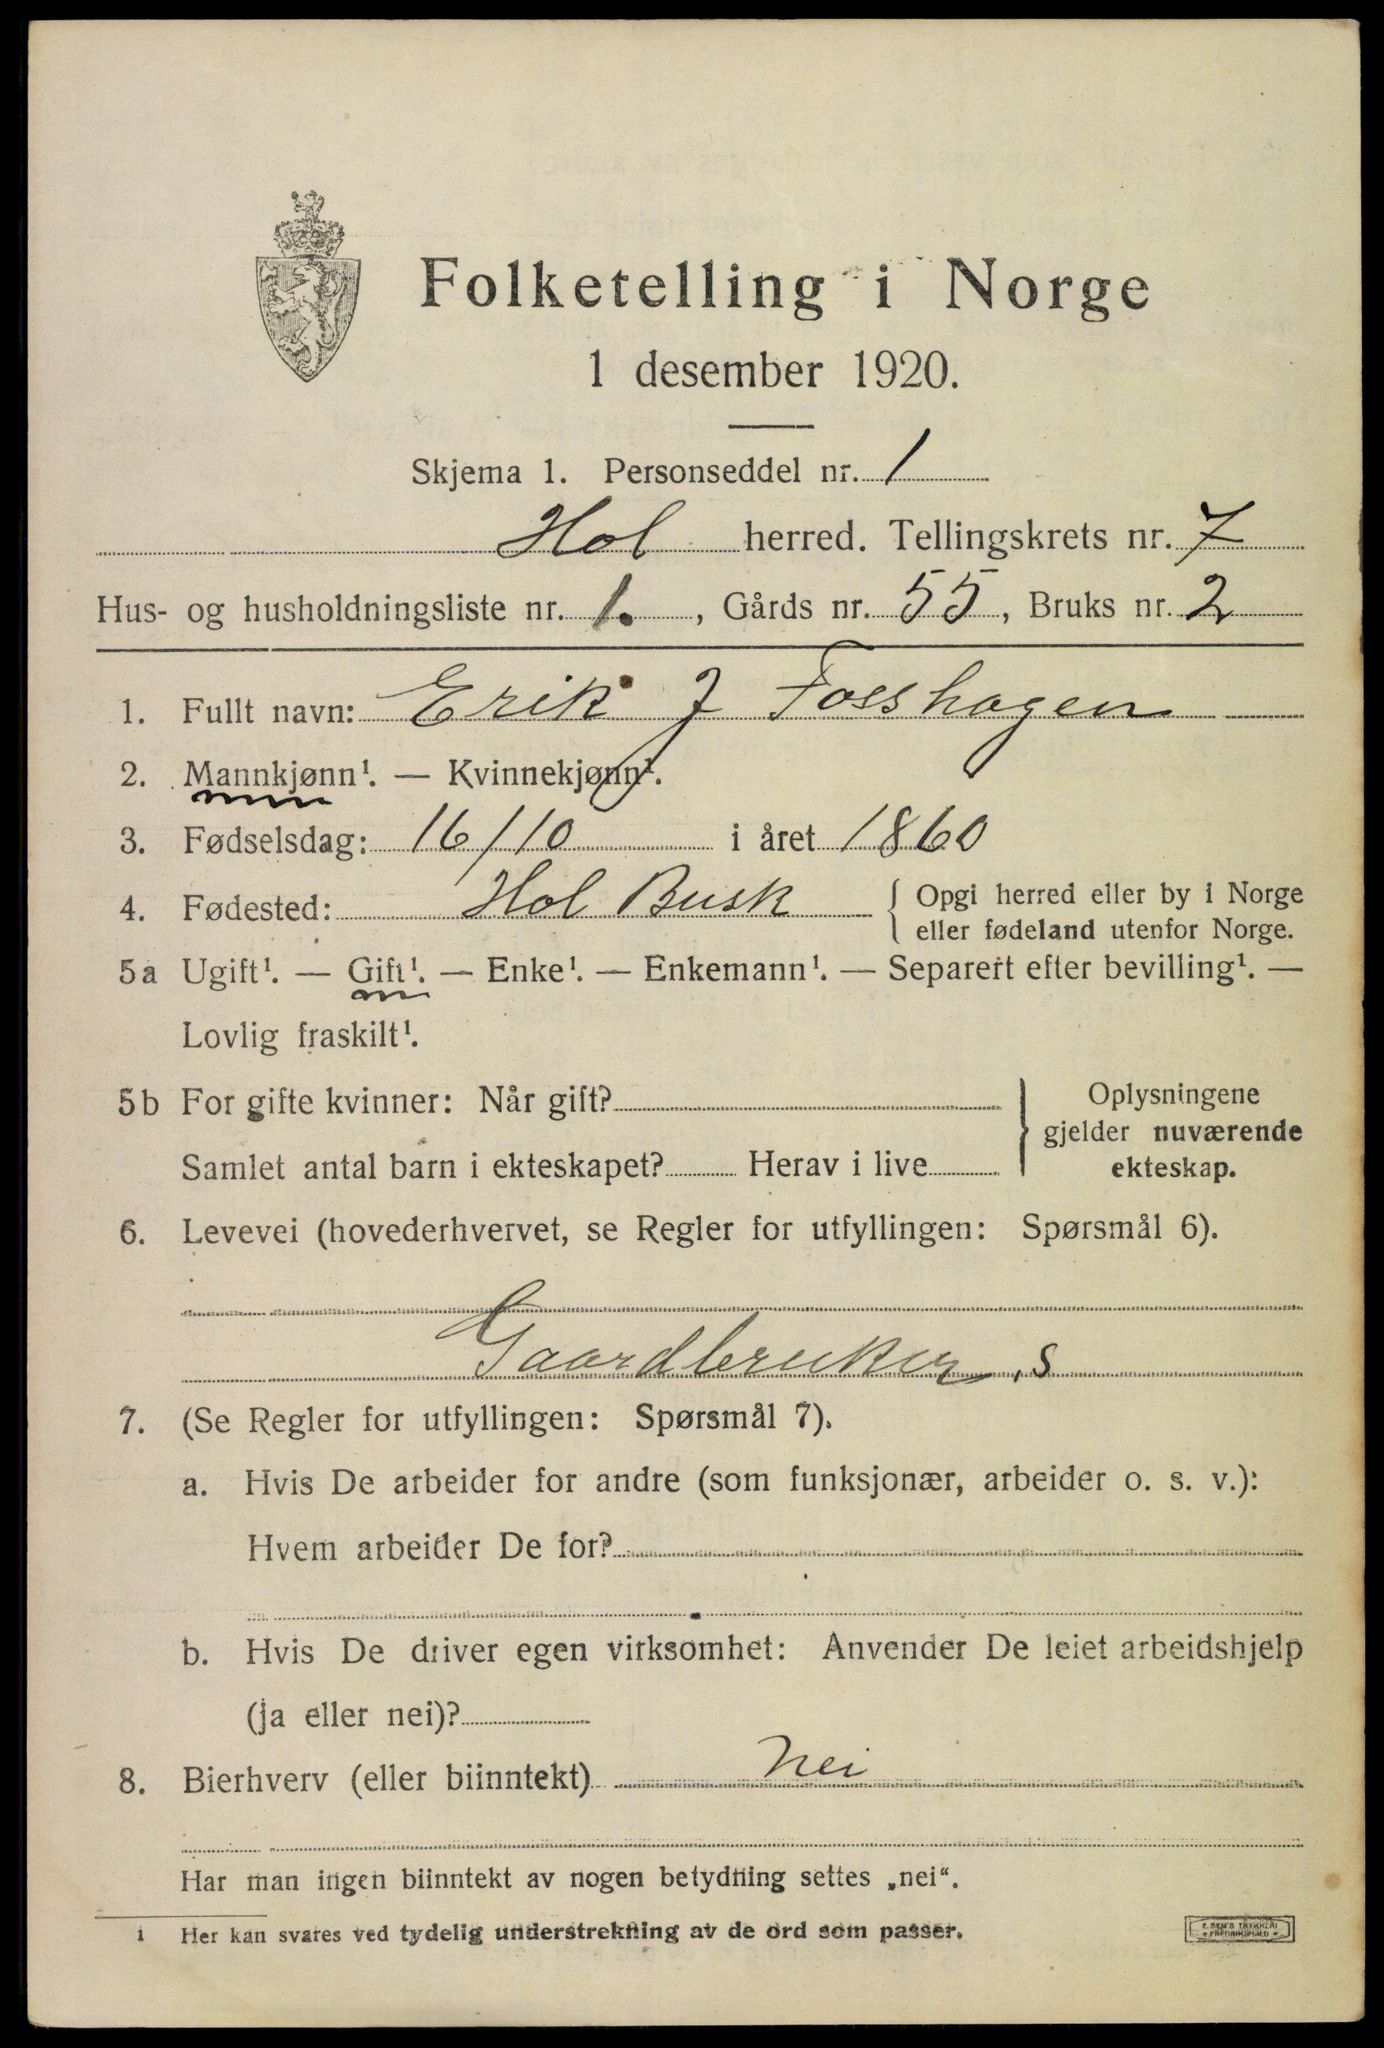 Folketelling i Norge
1 desember 1920.
Skjema 1. Personseddel nr. 1
Hol herred. Tellingskrets nr. 7
Hus- og husholdningsliste nr. 1. , Gårds nr. 55, Bruks nr. 2
1. Fullt navn: Erik J Fosshagen
2. Mannkjønn¹. — Kvinnekjønn¹.
3. Fødselsdag: 16/10 i året 1860
4. Fødested: Hol Busk { Opgi herred eller by i Norge
eller fødeland utenfor Norge.
5a Ugift¹. — Gift¹. — Enke¹. — Enkemann¹. — Separert efter bevilling¹. —
Lovlig fraskilt¹.
5b For gifte kvinner: Når gift? } Oplysningene
gjelder nuværende
Samlet antal barn i ekteskapet? Herav i live ekteskap.
6. Levevei (hovederhvervet, se Regler for utfyllingen: Spørsmål 6).
Gaardbruker, s
7. (Se Regler for utfyllingen: Spørsmål 7).
a. Hvis De arbeider for andre (som funksjonær, arbeider o. s. v.):
Hvem arbeider De for?
b. Hvis De driver egen virksomhet: Anvender De leiet arbeidshjelp
(ja eller nei)?
8. Bierhverv (eller biinntekt) Nei
Har man ingen biinntekt av nogen betydning settes „nei“.
1 Her kan svares ved tydelig understrekning av de ord som passer.
E. SEM'S TRYKKERI
FREDRIKSHALD